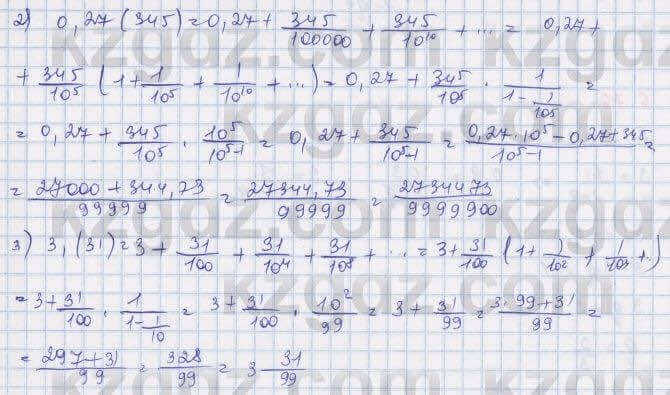 2) 0,27(345) = 0,27 + 345/100000 + 345/10^10 + ... = 0,27 +
+ 345/10^5 (1 + 1/10^5 + 1/10^10 + ...) = 0,27 + 345/10^5 · 1/(1 - 1/10^5) =
= 0,27 + 345/10^5 · 10^5/(10^5-1) = 0,27 + 345/(10^5-1) = (0,27·10^5 - 0,27 + 345)/(10^5-1) =
= (27000 + 344,73)/99999 = 27344,73/99999 = 2734473/9999900
3) 3,(31) = 3 + 31/100 + 31/10^4 + 31/10^8 + ... = 3 + 31/100 (1 + 1/10^2 + 1/10^4 + ..)
= 3 + 31/100 · 1/(1 - 1/10) = 3 + 31/100 · 10^2/99 = 3 + 31/99 = (3·99+31)/99 =
= (297+31)/99 = 328/99 = 3 31/99
kzgdz.com